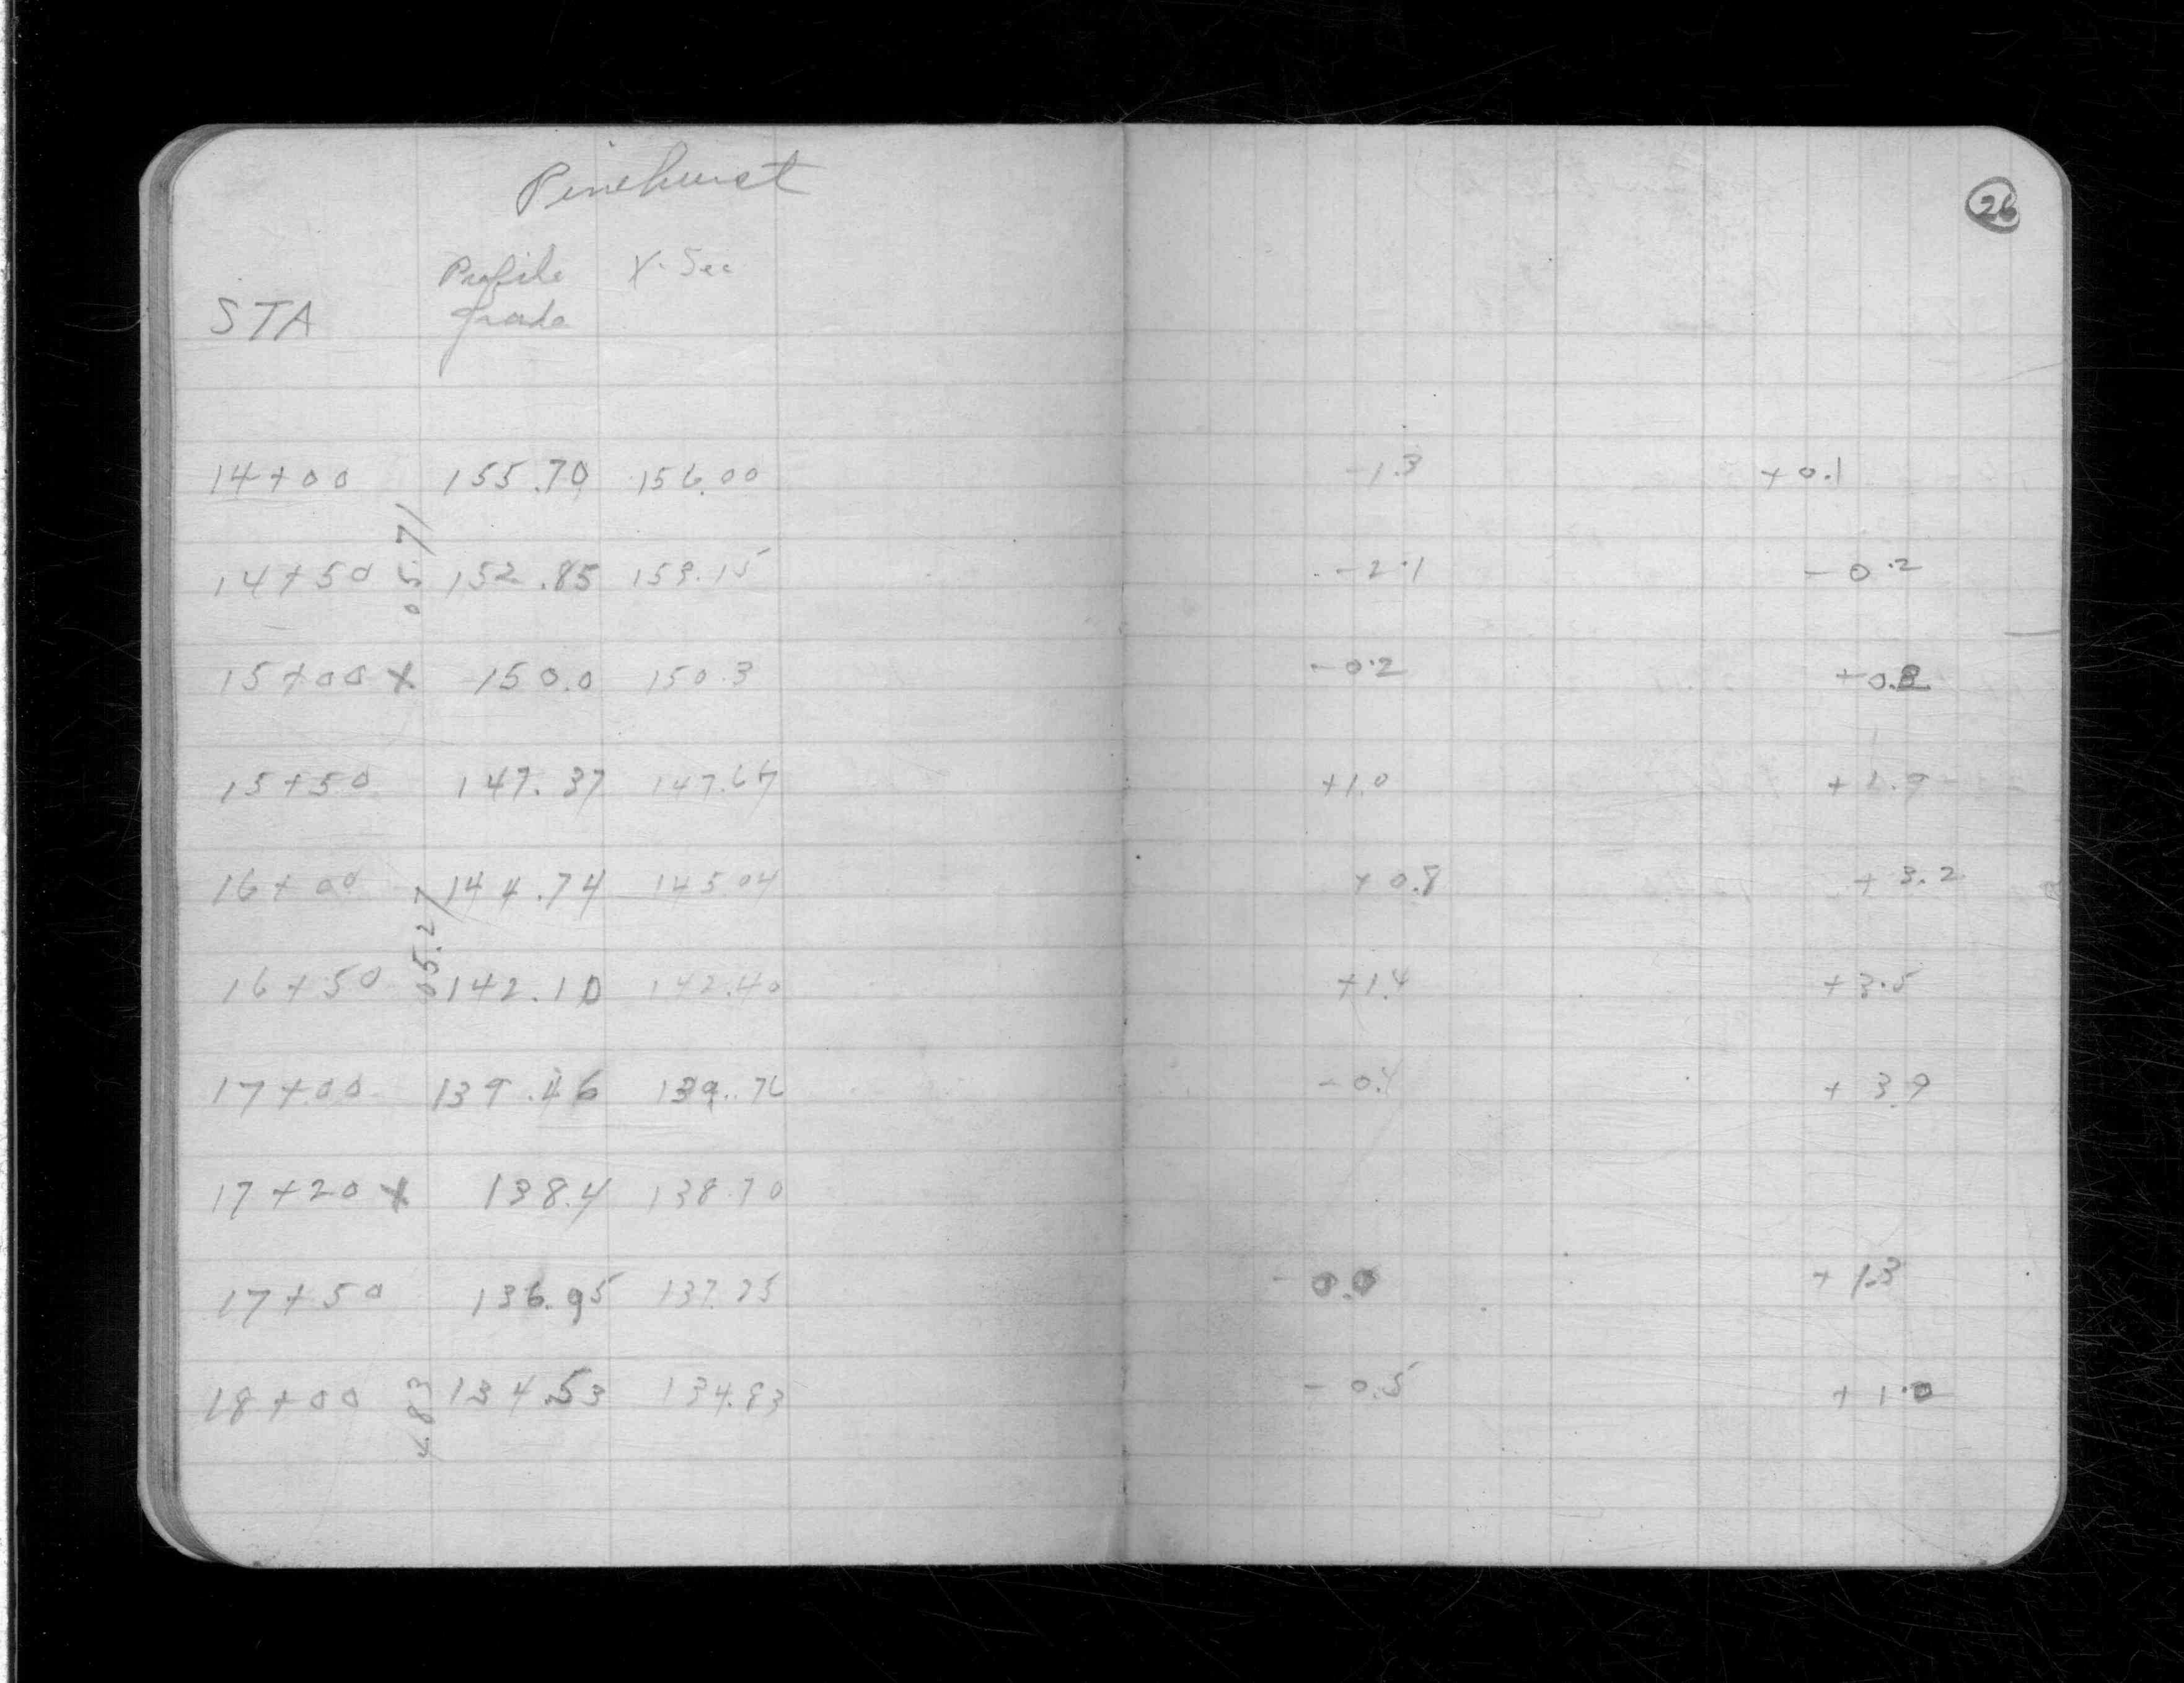 Pinehurst
26
Profile X-Sec
STA Grade
14+00 155.70 156.00 -1.3 +0.1
5.7/
14+50 152.85 153.15 -2.1 -0.2
15+00 X 150.0 150.3 -0.2
15+50 147.37 147.67 +1.0 +1.9
16+00 144.74 145.04 +0.8 +3.2
5.27
16+50 142.10 142.40 +1.4 +3.5
17+00 139.46 139.76 -0.4 +3.9
17+20 X 138.4 138.70
17+50 136.95 137.25 -0.0 +1.3
18+00 134.53 134.83 -0.5 +1.0
4.83